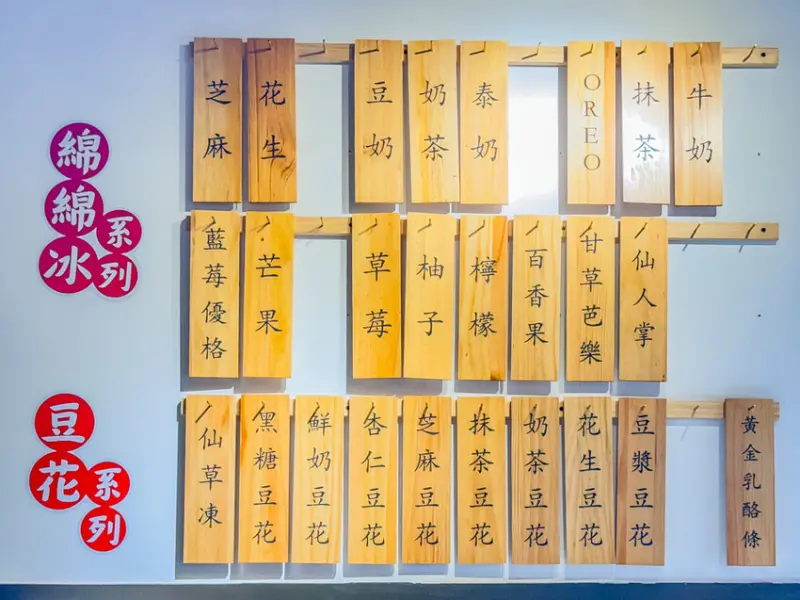 綿綿冰系列
芝麻
花生
豆奶
奶茶
泰奶
OREO
抹茶
牛奶
藍莓優格
芒果
草莓
柚子
檸檬
百香果
甘草芭樂
仙人掌
豆花系列
仙草凍
黑糖豆花
鮮奶豆花
杏仁豆花
芝麻豆花
抹茶豆花
奶茶豆花
花生豆花
豆漿豆花
黃金乳酪條